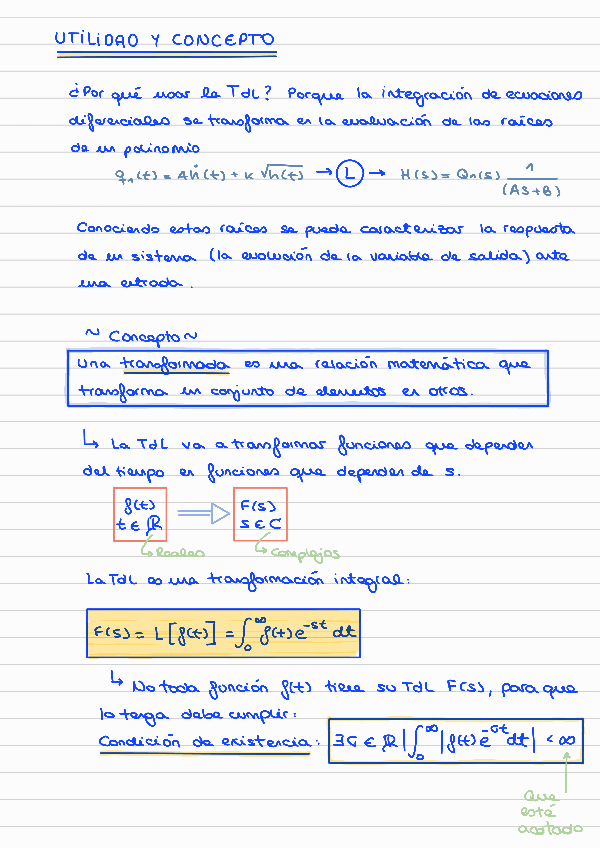 UTILIDAD Y CONCEPTO
¿Por qué usar la TdL? Porque la integración de ecuaciones
diferenciales se transforma en la evaluación de las raíces
de un polinomio
q₁(t) = Aḣ(t) + K √h(t) → L → H(s) = Q₁(s) 1/(As+B)
Conociendo estas raíces se puede caracterizar la respuesta
de un sistema (la evolución de la variable de salida) ante
una entrada.
~ Concepto ~
Una transformada es una relación matemática que
transforma un conjunto de elementos en otros.
↳ La TdL va a transformar funciones que dependen
del tiempo en funciones que dependen de s.
f(t) ⇒ F(s)
t ∈ ℝ s ∈ C
↳ Reales ↳ Complejos
La TdL es una transformación integral:
F(s) = L[f(t)] = ∫₀^∞ f(t) e^-st dt
↳ No toda función f(t) tiene su TdL F(s), para que
la tenga debe cumplir:
Condición de existencia: ∃σ ∈ ℝ | ∫₀^∞ |f(t) e^-σt dt| < ∞
Que
esté
acotado